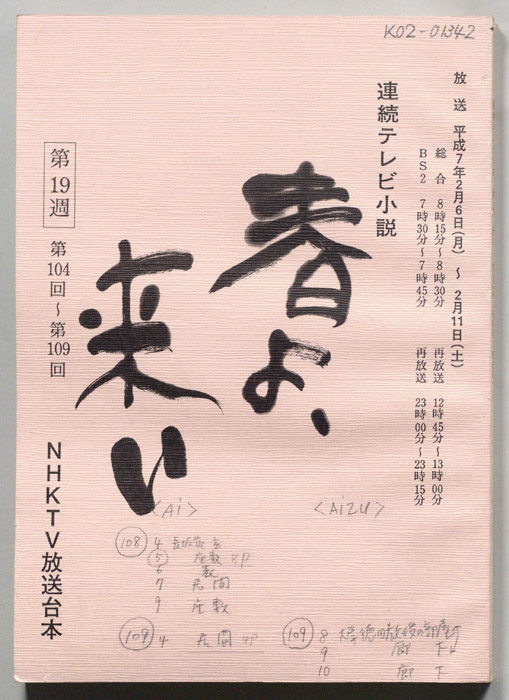 K02-01342
放送 平成7年2月6日(月) ~ 2月11日(土)
総合 8時15分~8時30分 再放送 12時45分~13時00分
BS2 7時30分~7時45分 再放送 23時00分~23時15分
連続テレビ小説
春よ、
来い
第19週
第104回~第109回
NHKTV放送台本
<Ai>
<AiZU>
108 4
5 座敷
6
7 居間
9 座敷
109 4 居間
109 8
9 廊下
10 廊下